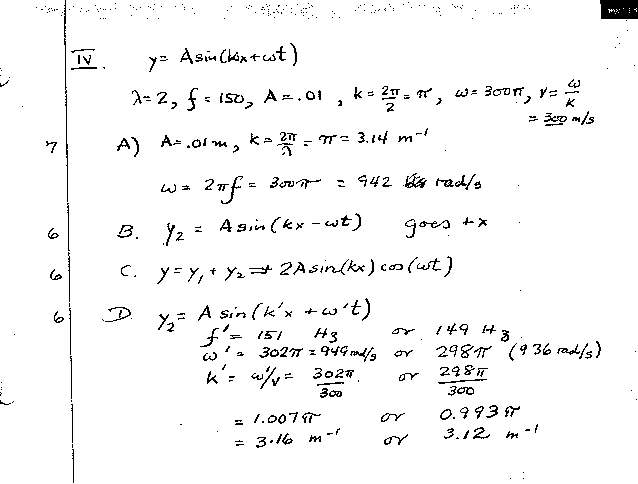 IV. y = A sin(kx + ωt)
λ = 2, f = 150, A = .01, k = 2π/2 = π, ω = 300π, v = ω/k
= 300 m/s
7 A) A = .01 m, k = 2π/λ = π = 3.14 m⁻¹
ω = 2πf = 300π = 942 rad/s
6 B. y₂ = A sin(kx - ωt) goes +x
6 C. y = y₁ + y₂ ⇒ 2A sin(kx) cos(ωt)
6 D. y₂ = A sin(k'x + ω't)
f' = 151 Hz or 149 Hz
ω' = 302π = 949 rad/s or 298π (936 rad/s)
k' = ω'/v = 302π/300 or 298π/300
= 1.007π or 0.993π
= 3.16 m⁻¹ or 3.12 m⁻¹